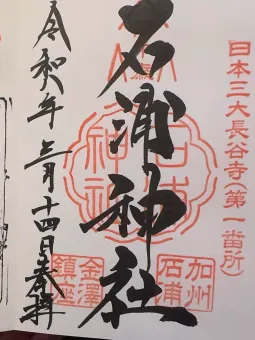 日本三大長谷寺(第一番所)
石浦神社
石浦
神社
加州
石浦
金澤
鎮座
令和年三月十四日奉拝